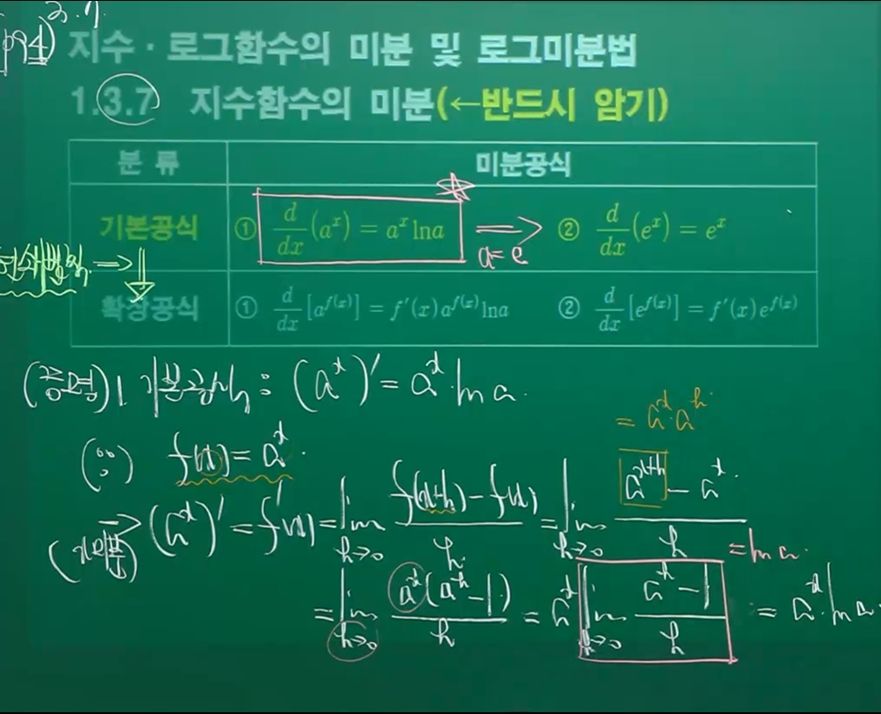 지수·로그함수의 미분 및 로그미분법
1.3.7 지수함수의 미분(←반드시 암기)
분 류 미분공식
기본공식 ① d/dx (a^x) = a^x lna ⟹ a=e ② d/dx (e^x) = e^x
확장공식 ① d/dx [a^{f(x)}] = f'(x)a^{f(x)} lna ② d/dx [e^{f(x)}] = f'(x)e^{f(x)}
(증명) 1 기본공식 : (a^x)' = a^x · ln a.
= a^x · a^h
(∵) f(x) = a^x.
(a^x)' = f'(x) = lim_{h→0} (f(x+h) − f(x))/h = lim_{h→0} (a^{x+h} − a^x)/h
= ln a.
= lim_{h→0} a^x(a^h − 1)/h = a^x lim_{h→0} (a^h − 1)/h = a^x · ln a